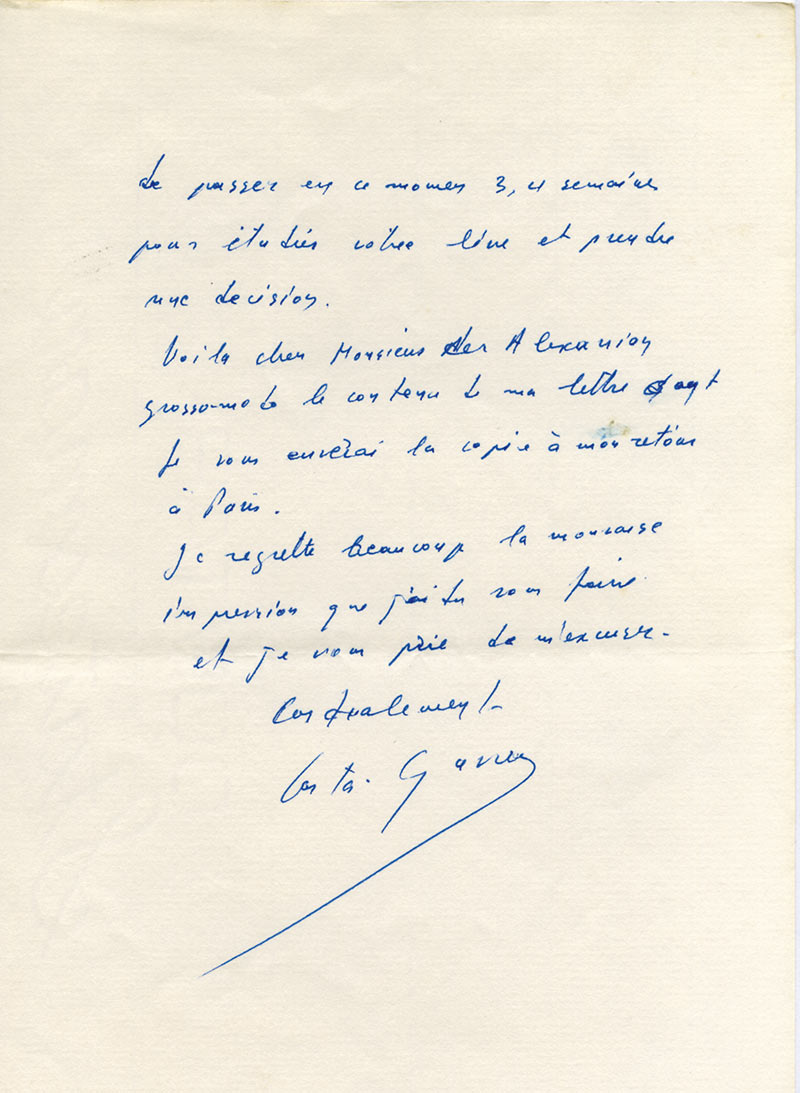 de passer en ce momen 3, 4 semaines
pour étudier votre livre et prendre
une decision.
Voila cher Monsieur der Alexanian
grosso-modo le contenu de ma lettre dont
Je vous enverai la copie à mon retour
à Paris.
Je regrette beaucoup la mauvaise
impression que j'ai du vous faire
et je vous prie de m'excuser.
Cordialement
Costa. Gavras